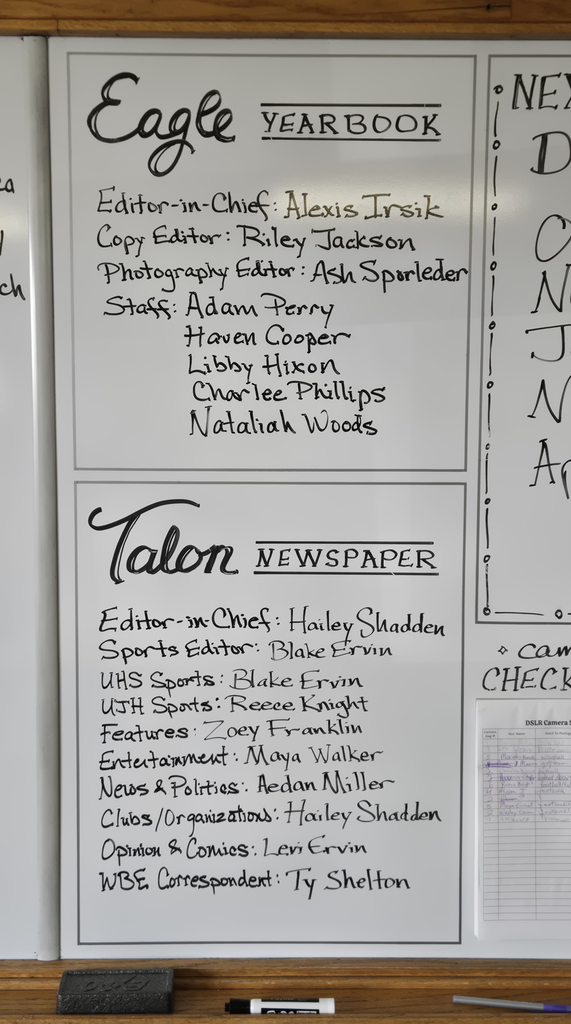 Eagle YEARBOOK
Editor-in-Chief: Alexis Irsik
Copy Editor: Riley Jackson
Photography Editor: Ash Sporleder
Staff: Adam Perry
Haven Cooper
Libby Hixon
Charlee Phillips
Nataliah Woods
Talon NEWSPAPER
Editor-in-Chief: Hailey Shadden
Sports Editor: Blake Ervin
UHS Sports: Blake Ervin
UJH Sports: Reece Knight
Features: Zoey Franklin
Entertainment: Maya Walker
News & Politics: Aedan Miller
Clubs/Organizations: Hailey Shadden
Opinion & Comics: Levi Ervin
WBE Correspondent: Ty Shelton
DSLR Camera